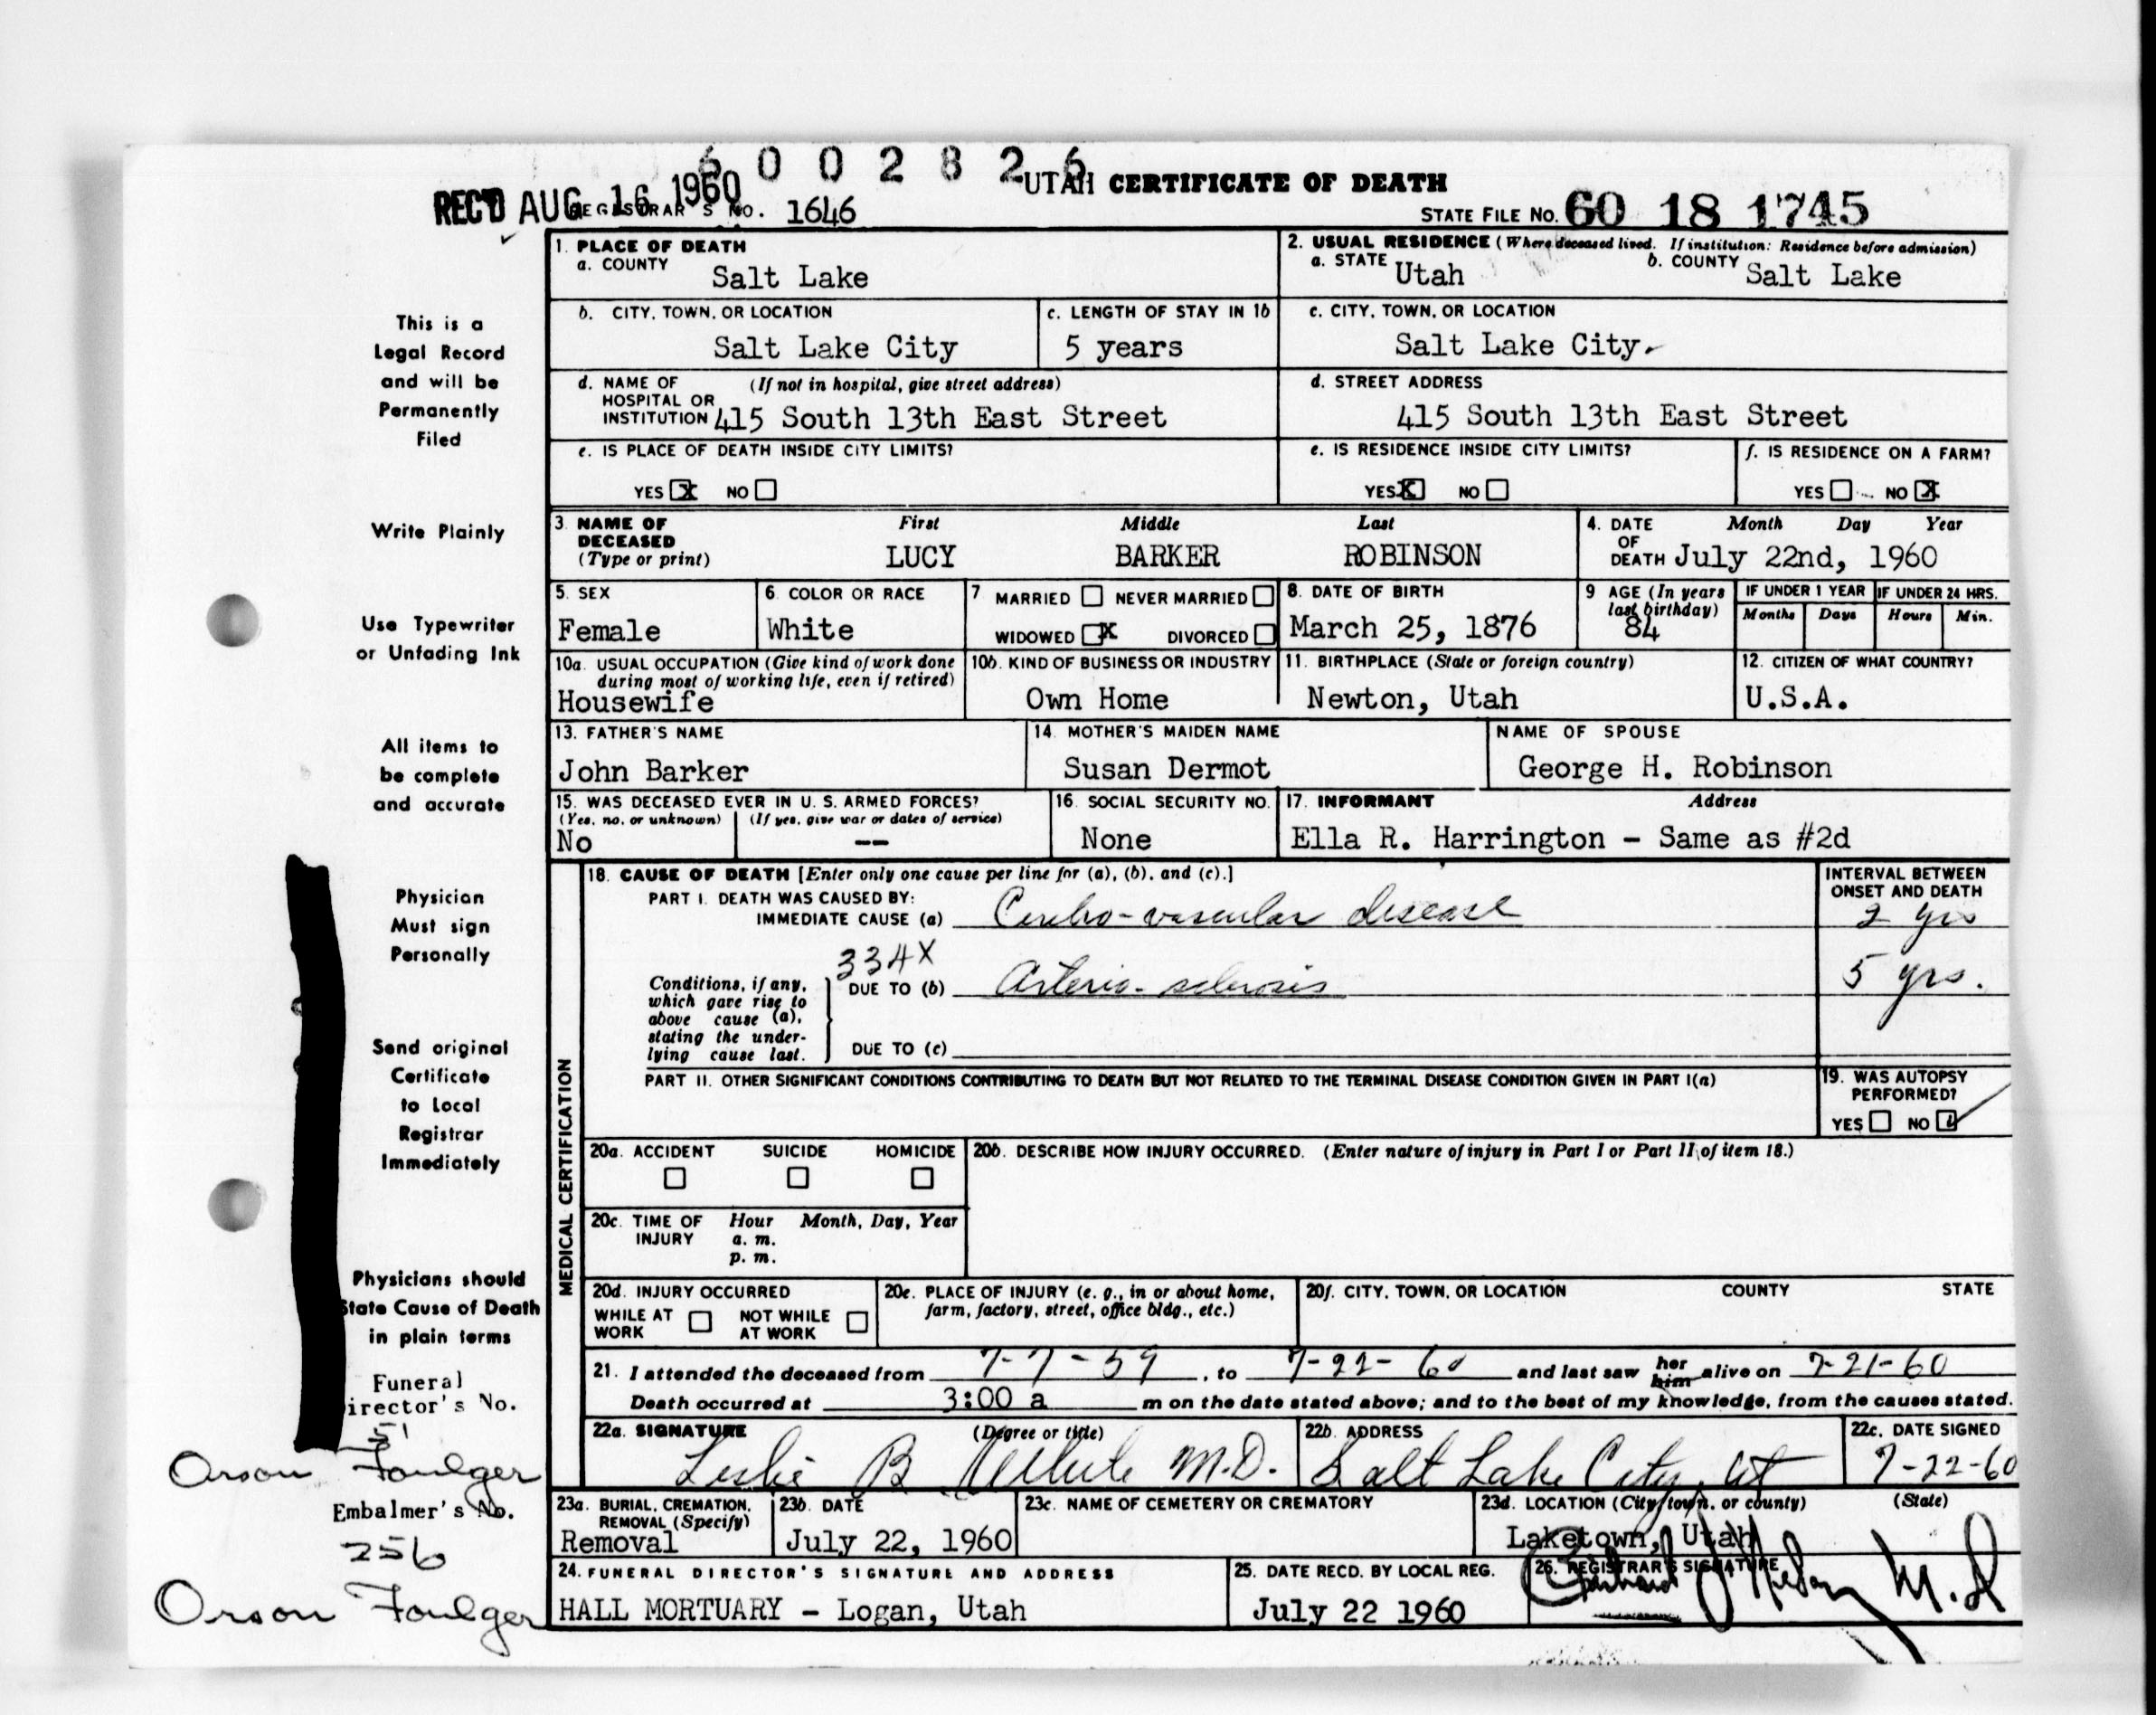 6002826
REC'D AUG 16 1960
REGISTRAR'S NO. 1646
UTAH CERTIFICATE OF DEATH
STATE FILE NO. 60 18 1745
This is a
Legal Record
and will be
Permanently
Filed
Write Plainly
Use Typewriter
or Unfading Ink
All items to
be complete
and accurate
Physician
Must sign
Personally
Send original
Certificate
to Local
Registrar
Immediately
Physicians should
State Cause of Death
in plain terms
Funeral
irector's No.
51
Orson Foulger
Embalmer's No.
256
Orson Foulger
1. PLACE OF DEATH
a. COUNTY Salt Lake
2. USUAL RESIDENCE (Where deceased lived. If institution: Residence before admission)
a. STATE Utah b. COUNTY Salt Lake
b. CITY, TOWN, OR LOCATION
Salt Lake City
c. LENGTH OF STAY IN 1b
5 years
c. CITY, TOWN, OR LOCATION
Salt Lake City
d. NAME OF (If not in hospital, give street address)
HOSPITAL OR
INSTITUTION 415 South 13th East Street
d. STREET ADDRESS
415 South 13th East Street
e. IS PLACE OF DEATH INSIDE CITY LIMITS?
YES X NO
e. IS RESIDENCE INSIDE CITY LIMITS?
YES X NO
f. IS RESIDENCE ON A FARM?
YES NO X
3. NAME OF DECEASED (Type or print)
First Middle Last
LUCY BARKER ROBINSON
4. DATE OF DEATH Month Day Year
July 22nd, 1960
5. SEX
Female
6. COLOR OR RACE
White
7 MARRIED NEVER MARRIED
WIDOWED X DIVORCED
8. DATE OF BIRTH
March 25, 1876
9 AGE (In years last birthday)
84
IF UNDER 1 YEAR IF UNDER 24 HRS.
Months Days Hours Min.
10a. USUAL OCCUPATION (Give kind of work done
during most of working life, even if retired)
Housewife
10b. KIND OF BUSINESS OR INDUSTRY
Own Home
11. BIRTHPLACE (State or foreign country)
Newton, Utah
12. CITIZEN OF WHAT COUNTRY?
U.S.A.
13. FATHER'S NAME
John Barker
14. MOTHER'S MAIDEN NAME
Susan Dermot
NAME OF SPOUSE
George H. Robinson
15. WAS DECEASED EVER IN U. S. ARMED FORCES?
(Yes, no, or unknown) (If yes, give war or dates of service)
No --
16. SOCIAL SECURITY NO.
None
17. INFORMANT Address
Ella R. Harrington - Same as #2d
MEDICAL CERTIFICATION
18. CAUSE OF DEATH [Enter only one cause per line for (a), (b), and (c).]
PART I. DEATH WAS CAUSED BY:
IMMEDIATE CAUSE (a) Cerebro-vascular disease
INTERVAL BETWEEN
ONSET AND DEATH
2 yrs
334X
Conditions, if any,
which gave rise to
above cause (a),
stating the under-
lying cause last.
DUE TO (b) Arterio-sclerosis
5 yrs.
DUE TO (c)
PART II. OTHER SIGNIFICANT CONDITIONS CONTRIBUTING TO DEATH BUT NOT RELATED TO THE TERMINAL DISEASE CONDITION GIVEN IN PART I(a)
19. WAS AUTOPSY
PERFORMED?
YES NO
20a. ACCIDENT SUICIDE HOMICIDE
20b. DESCRIBE HOW INJURY OCCURRED. (Enter nature of injury in Part I or Part II of item 18.)
20c. TIME OF INJURY Hour Month, Day, Year
a. m.
p. m.
20d. INJURY OCCURRED
WHILE AT WORK NOT WHILE AT WORK
20e. PLACE OF INJURY (e. g., in or about home,
farm, factory, street, office bldg., etc.)
20f. CITY, TOWN, OR LOCATION COUNTY STATE
21. I attended the deceased from 7-7-59, to 7-22-60 and last saw her him alive on 7-21-60
Death occurred at 3:00 a m on the date stated above; and to the best of my knowledge, from the causes stated.
22a. SIGNATURE (Degree or title)
Leslie B White M.D.
22b. ADDRESS
Salt Lake City, Ut
22c. DATE SIGNED
7-22-60
23a. BURIAL, CREMATION,
REMOVAL (Specify)
Removal
23b. DATE
July 22, 1960
23c. NAME OF CEMETERY OR CREMATORY
23d. LOCATION (City, town, or county) (State)
Laketown, Utah
24. FUNERAL DIRECTOR'S SIGNATURE AND ADDRESS
HALL MORTUARY - Logan, Utah
25. DATE RECD. BY LOCAL REG.
July 22 1960
26. REGISTRAR'S SIGNATURE
M.D